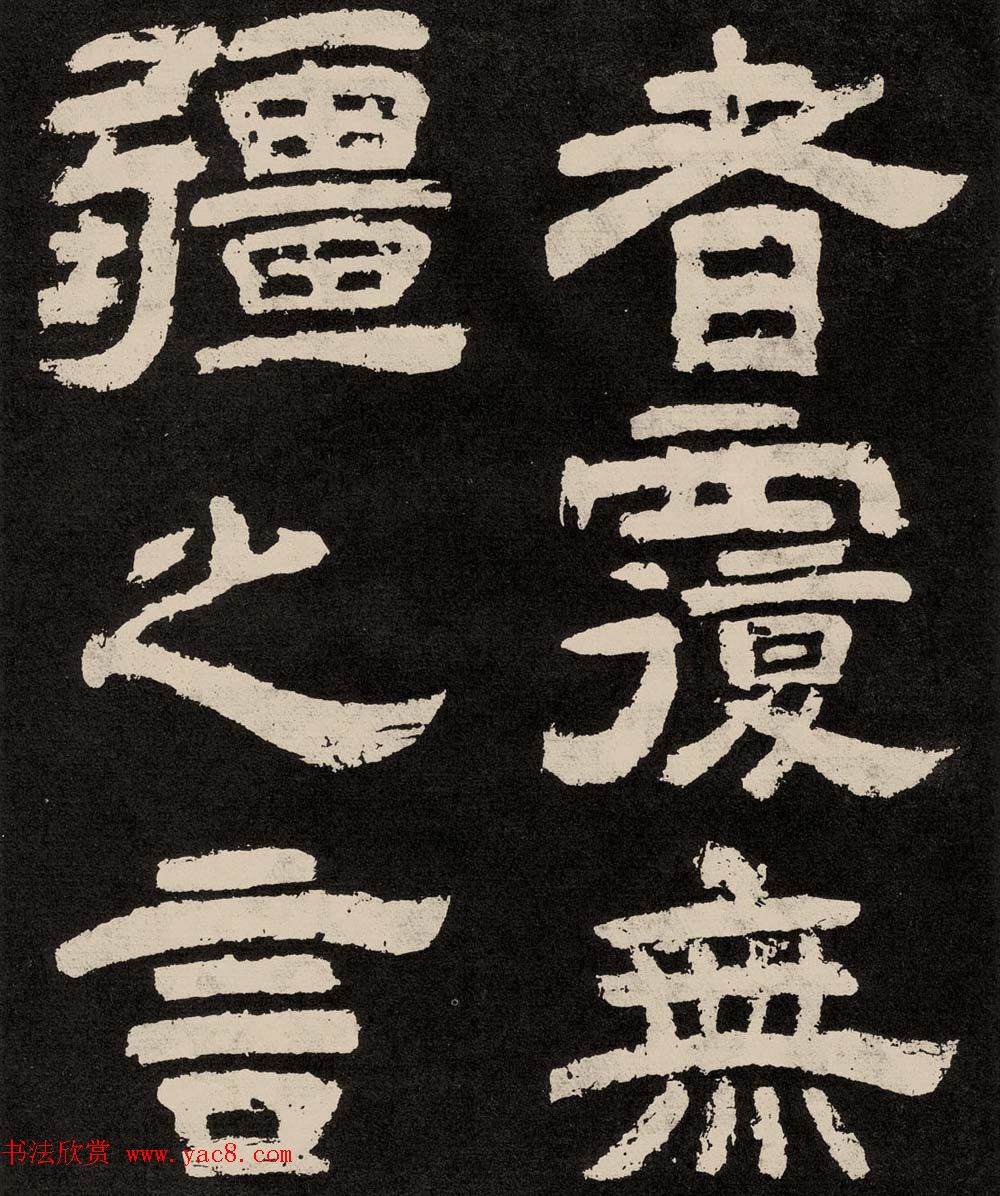 者覆無
疆之言
书法欣赏 www.yac8.com